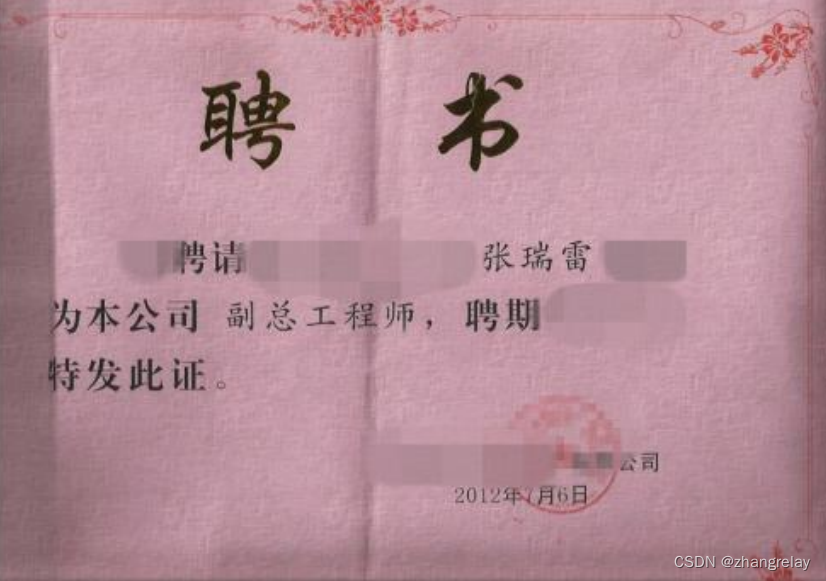 聘书
聘请 张瑞雷
为本公司 副总工程师，聘期
特发此证。
公司
2012年7月6日
CSDN @zhangrelay